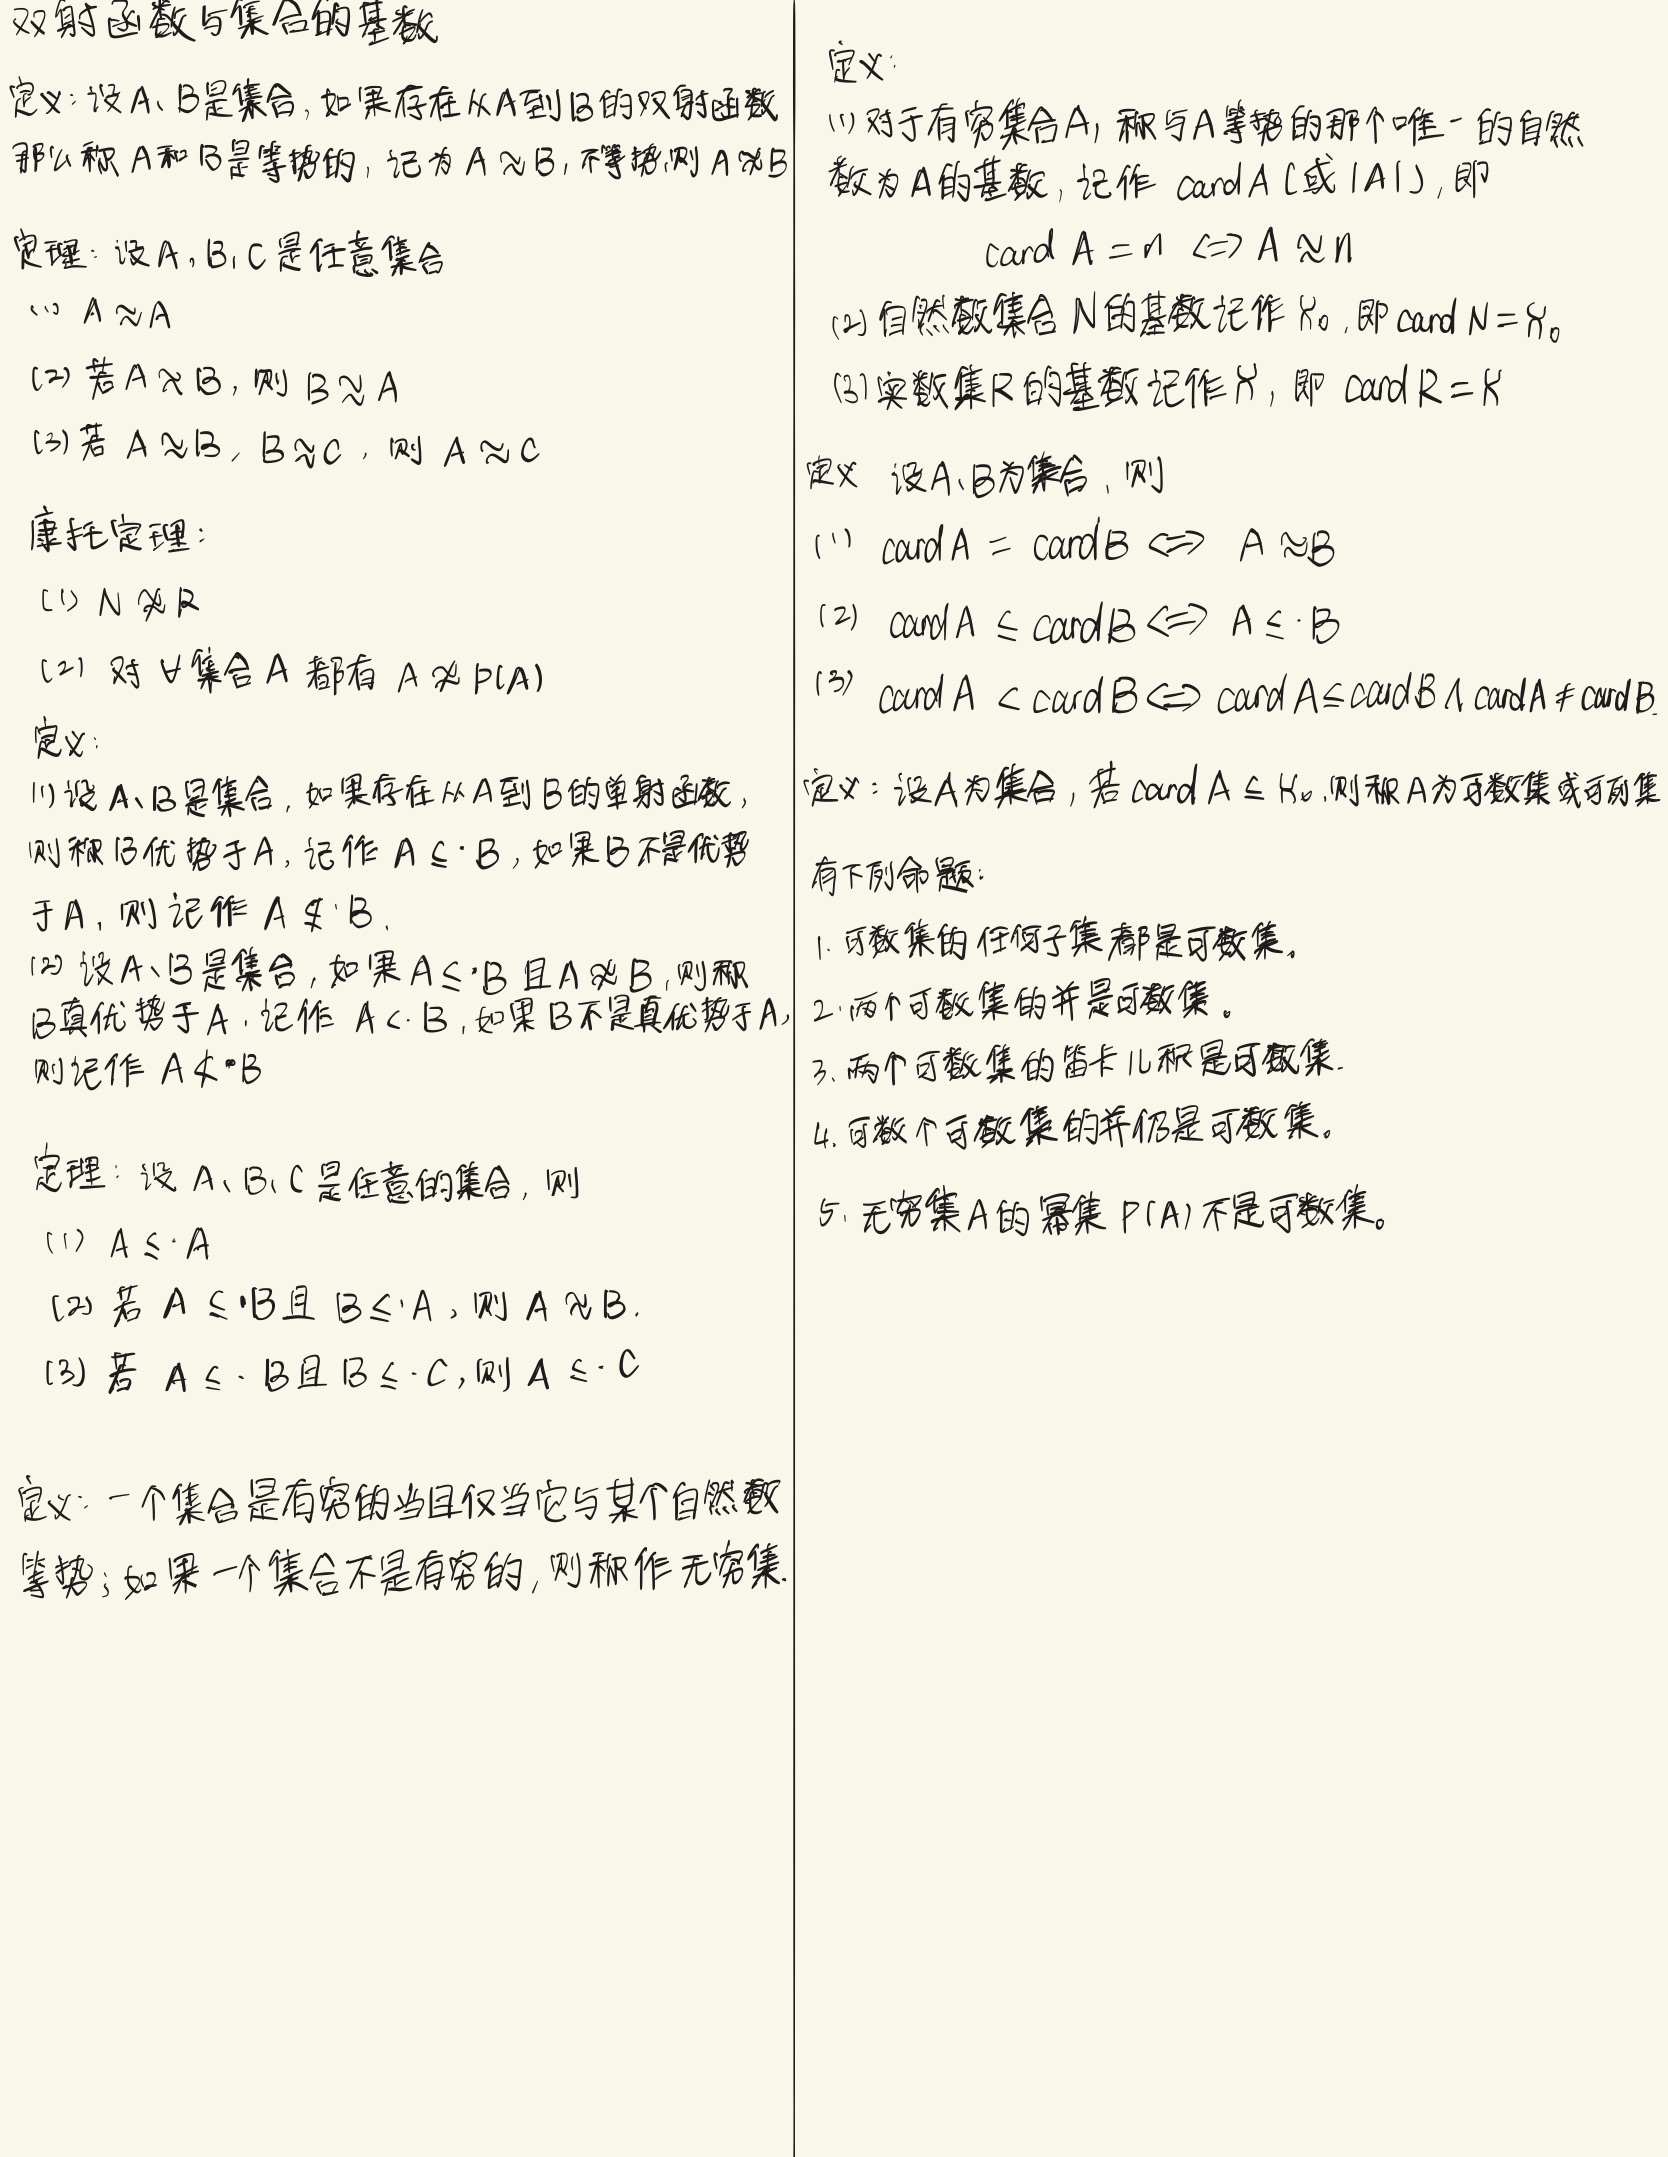 双射函数与集合的基数
定义:设A、B是集合,如果存在从A到B的双射函数
那么称A和B是等势的,记为A≈B,不等势,则A≉B
定理:设A,B,C是任意集合
(1) A≈A
(2) 若A≈B,则B≈A
(3) 若A≈B,B≈C,则A≈C
康托定理:
(1) N≉R
(2) 对∀集合A都有A≉P(A)
定义:
(1)设A、B是集合,如果存在从A到B的单射函数,
则称B优势于A,记作A≤·B,如果B不是优势
于A,则记作A≰·B.
(2)设A、B是集合,如果A≤·B且A≉B,则称
B真优势于A.记作A<·B,如果B不是真优势于A,
则记作A≮·B
定理:设A、B、C是任意的集合,则
(1) A≤·A
(2) 若A≤·B且B≤·A,则A≈B.
(3) 若A≤·B且B≤·C,则A≤·C
定义:一个集合是有穷的当且仅当它与某个自然数
等势;如果一个集合不是有穷的,则称作无穷集.
定义:
(1)对于有穷集合A,称与A等势的那个唯一的自然
数为A的基数,记作cardA(或|A|),即
card A=n <=> A≈n
(2)自然数集合N的基数记作ℵ₀,即card N=ℵ₀
(3)实数集R的基数记作ℵ,即 card R=ℵ
定义 设A、B为集合,则
(1) cardA = cardB <=> A≈B
(2) cardA ≤ cardB <=> A≤·B
(3) cardA < cardB <=> cardA≤cardB∧cardA≠cardB.
定义:设A为集合,若card A≤ℵ₀,则称A为可数集或可列集
有下列命题:
1.可数集的任何子集都是可数集。
2.两个可数集的并是可数集。
3.两个可数集的笛卡儿积是可数集.
4.可数个可数集的并仍是可数集。
5.无穷集A的幂集P(A)不是可数集。